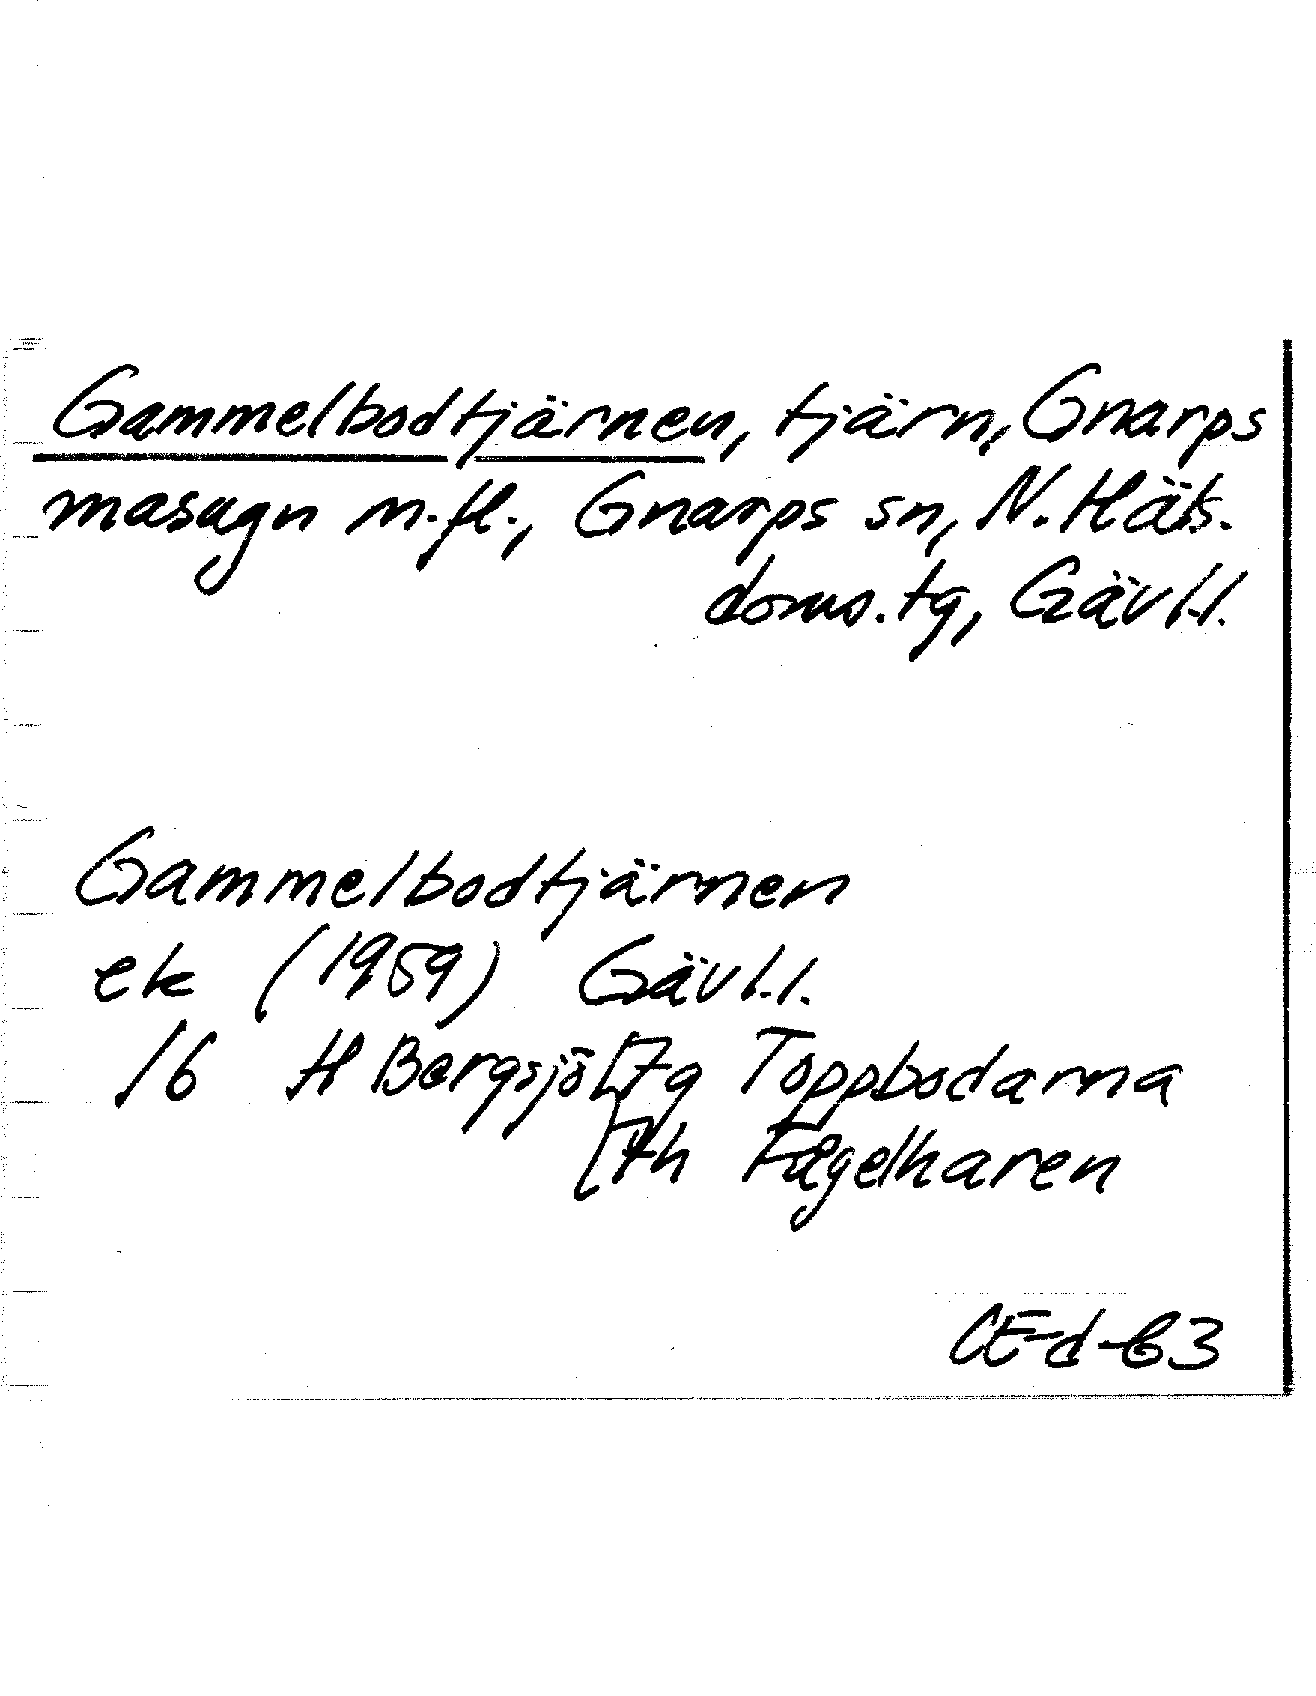 Gammelbodtjärnen, tjärn, Gnarps
masugn m.fl., Gnarps sn, N. Häls.
doms.tg, Gävl.l.
Gammelbodtjärnen
ek (1959) Gävl.l.
16 H Bergsjö [7g Toppbodarna
[7h Fågelharen
CE-d-63